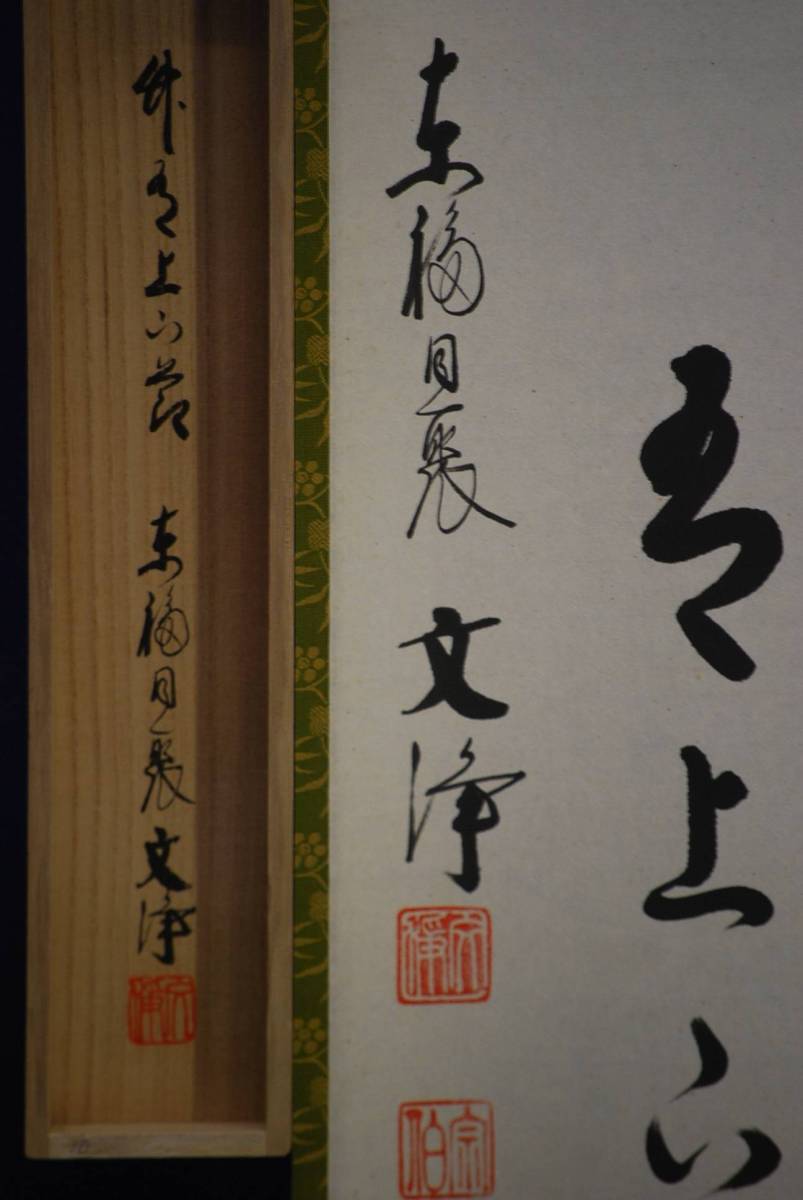 有上下
東福同聚 文浄
文浄
宗伯
竹有上下節 東福同聚 文浄
文浄